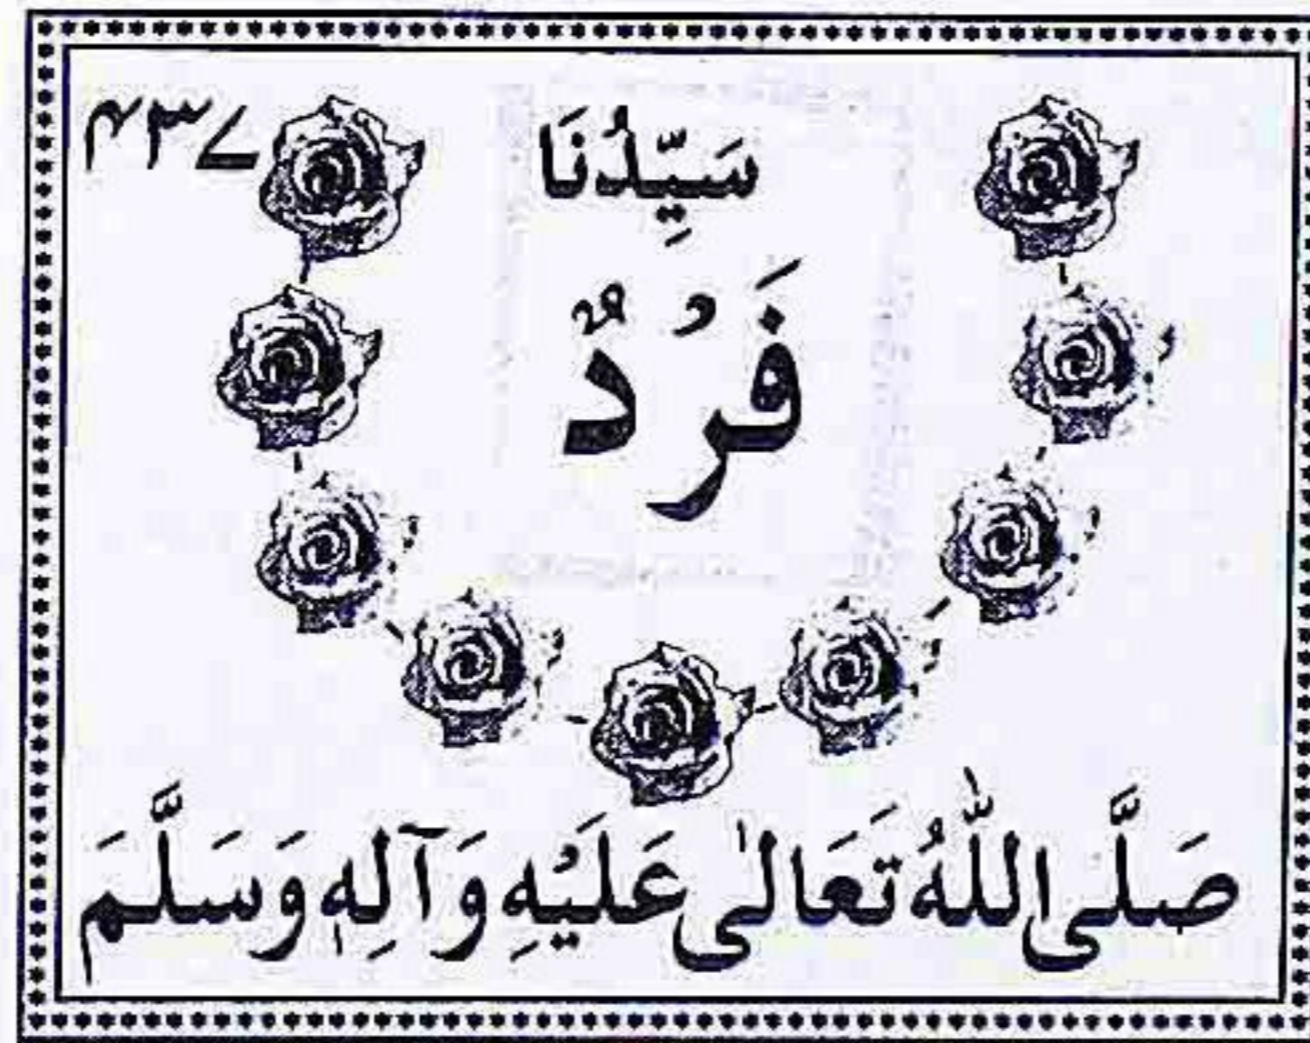 سَيِّدُنَا ۴۳۷
فَرْدٌ
صَلَّى اللّٰهُ تَعَالٰى عَلَيْهِ وَآلِهٖ وَسَلَّمَ